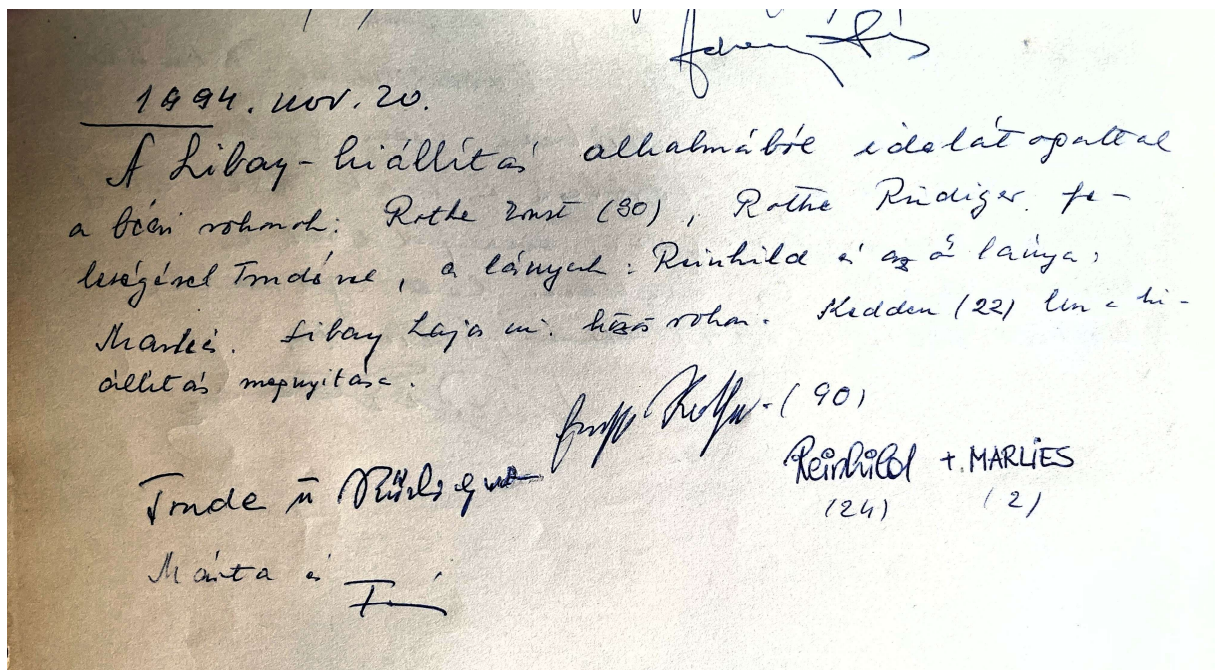 1994. nov. 20.
A Libay-kiállítás alkalmából idelátogattak
a bécsi rokonok: Rothe Ernst (90), Rothe Rüdiger fe-
leségével Trudéval, a lányuk: Reinhild és az ő lánya:
Marlies. Libay Lajos közös rokon. Kedden (22) lesz a ki-
állítás megnyitása.
(90)
Reinhild + MARLIES
Trude u Rüdiger
(24) (2)
Márta és